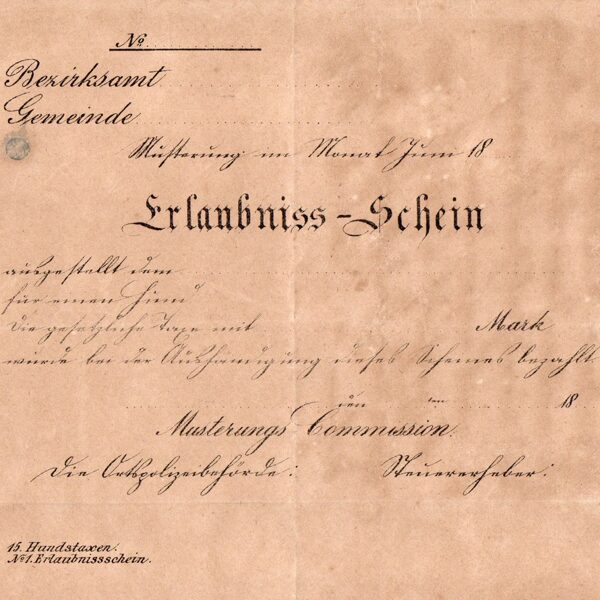 No.
Bezirksamt
Gemeinde
Musterung im Monat Juni 18
Erlaubniss-Schein
ausgestellt dem
für einen Hund
Die gesetzliche Taxe mit Mark
wurde bei der Aushändigung dieses Scheines bezahlt.
den ten 18
Musterungs-Commission.
Die Ortspolizeibehörde: Steuererheber:
15. Hundstaxen.
No 1. Erlaubnissschein.